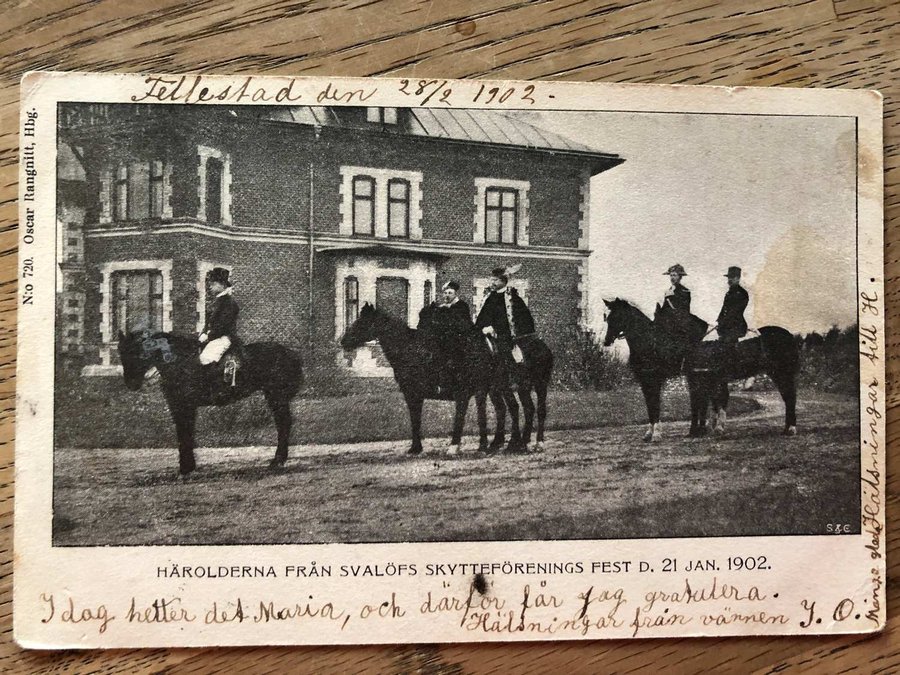 Fellestad den 28/2 1902.
N:o 720. Oscar Rangnitt, Hbg.
S&C
HÄROLDERNA FRÅN SVALÖFS SKYTTEFÖRENINGS FEST D. 21 JAN. 1902.
I dag hetter det Maria, och därför får jag gratulera.
Hälsningar från vännen I. O.
Hälsningar till H.